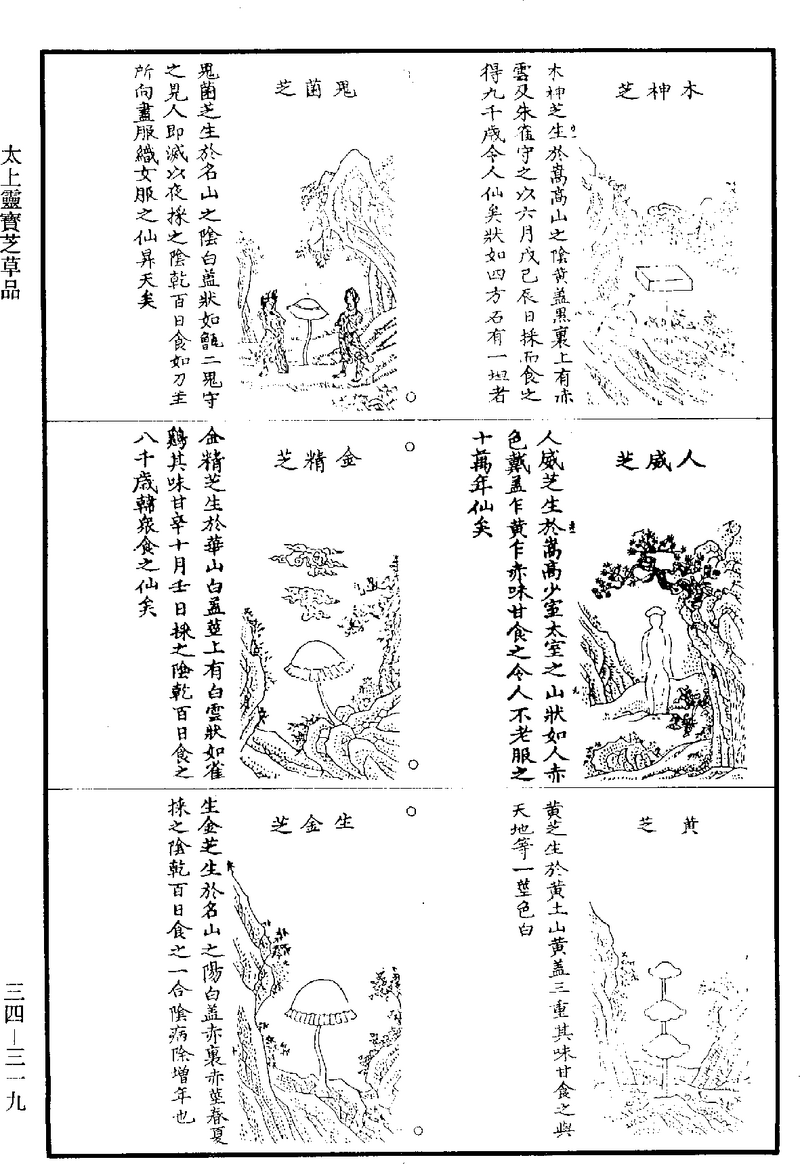 太上靈寶芝草品
三四—三一九
木神芝
木神芝生於嵩高山之陰黃蓋黑裏上有赤
雲又朱雀守之以六月戊己辰日採而食之
得九千歲令人仙矣狀如四方石有一坦者
鬼菌芝
鬼菌芝生於名山之陰白蓋狀如甑二鬼守
之見人即滅以夜採之陰乾百日食如刀圭
所向盡服織女服之仙昇天矣
人威芝
人威芝生於嵩高少室太室之山狀如人赤
色戴蓋乍黃乍赤味甘食之令人不老服之
十萬年仙矣
金精芝
金精芝生於華山白蓋莖上有白雲狀如雀
鷄其味甘辛十月壬日採之陰乾百日食之
八千歲韓眾食之仙矣
黃芝
黃芝生於黃土山黃蓋三重其味甘食之與
天地等一莖色白
生金芝
生金芝生於名山之陽白蓋赤裏赤莖春夏
採之陰乾百日食之一合陰病除增年也